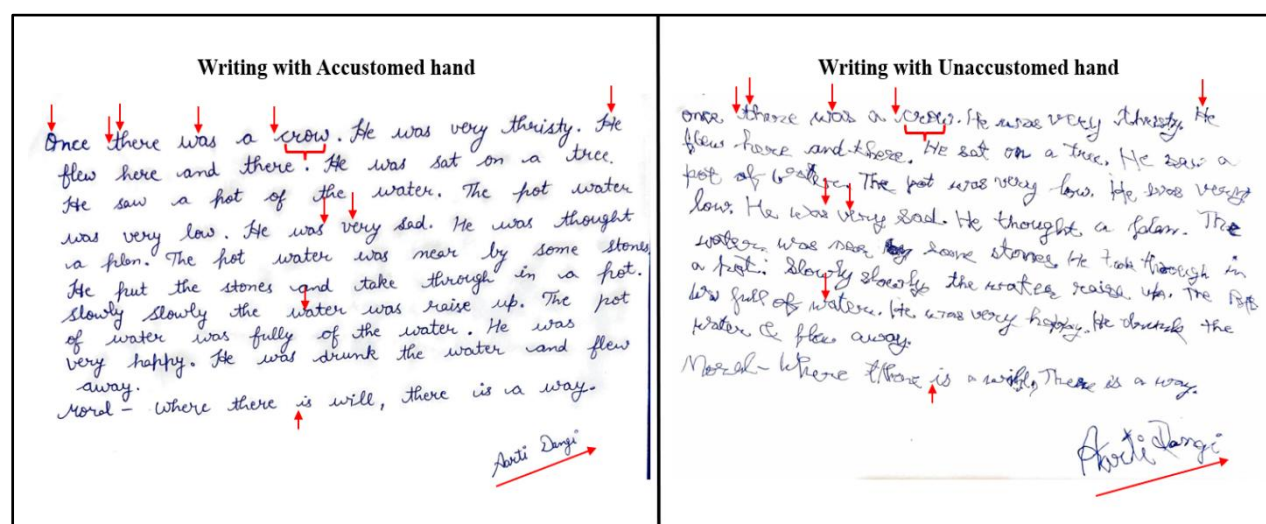 Writing with Accustomed hand
Once there was a crow. He was very thristy. He
flew here and there. He was sat on a tree.
He saw a pot of the water. The pot water
was very low. He was very sad. He was thought
a plan. The pot water was near by some stones,
He put the stones and take through in a pot.
slowly slowly the water was raise up. The pot
of water was fully of the water. He was
very happy. He was drunk the water and flew
away.
Moral - where there is will, there is a way.
Aarti Dangi
Writing with Unaccustomed hand
once there was a crow. He was very thristy. He
flew here and there. He sat on a tree. He saw a
pot of water. The pot was very low. He was very
low. He was very sad. He thought a plan. The
water was near by some stones. He took through in
a pot. Slowly slowly the water raise up. The pot
full of water. He was very happy. He drunk the
water & flew away.
Moral - Where there is a will, There is a way.
Aarti Dangi